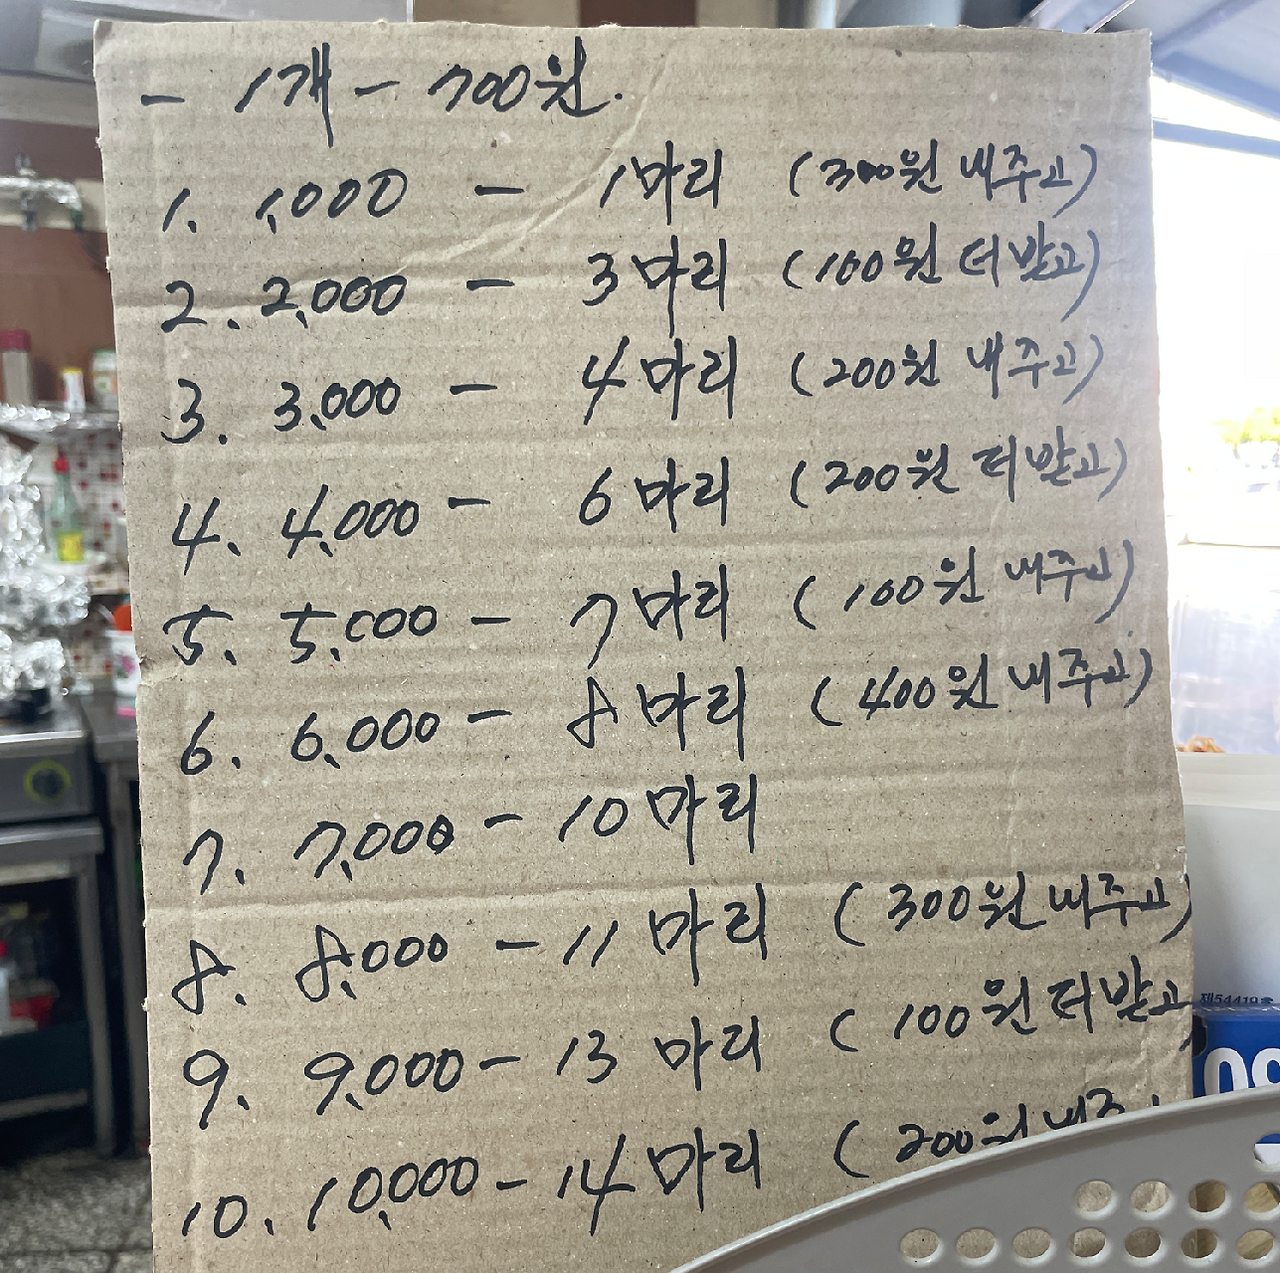 - 1개 - 700원.
1. 1,000 - 1마리 (300원 내주고)
2. 2,000 - 3마리 (100원 더 받고)
3. 3,000 - 4마리 (200원 내주고)
4. 4,000 - 6마리 (200원 더 받고)
5. 5,000 - 7마리 (100원 내주고)
6. 6,000 - 8마리 (400원 내주고)
7. 7,000 - 10마리
8. 8,000 - 11마리 (300원 내주고)
9. 9,000 - 13마리 (100원 더 받고
10. 10,000 - 14마리 (200원 내주
제54419호